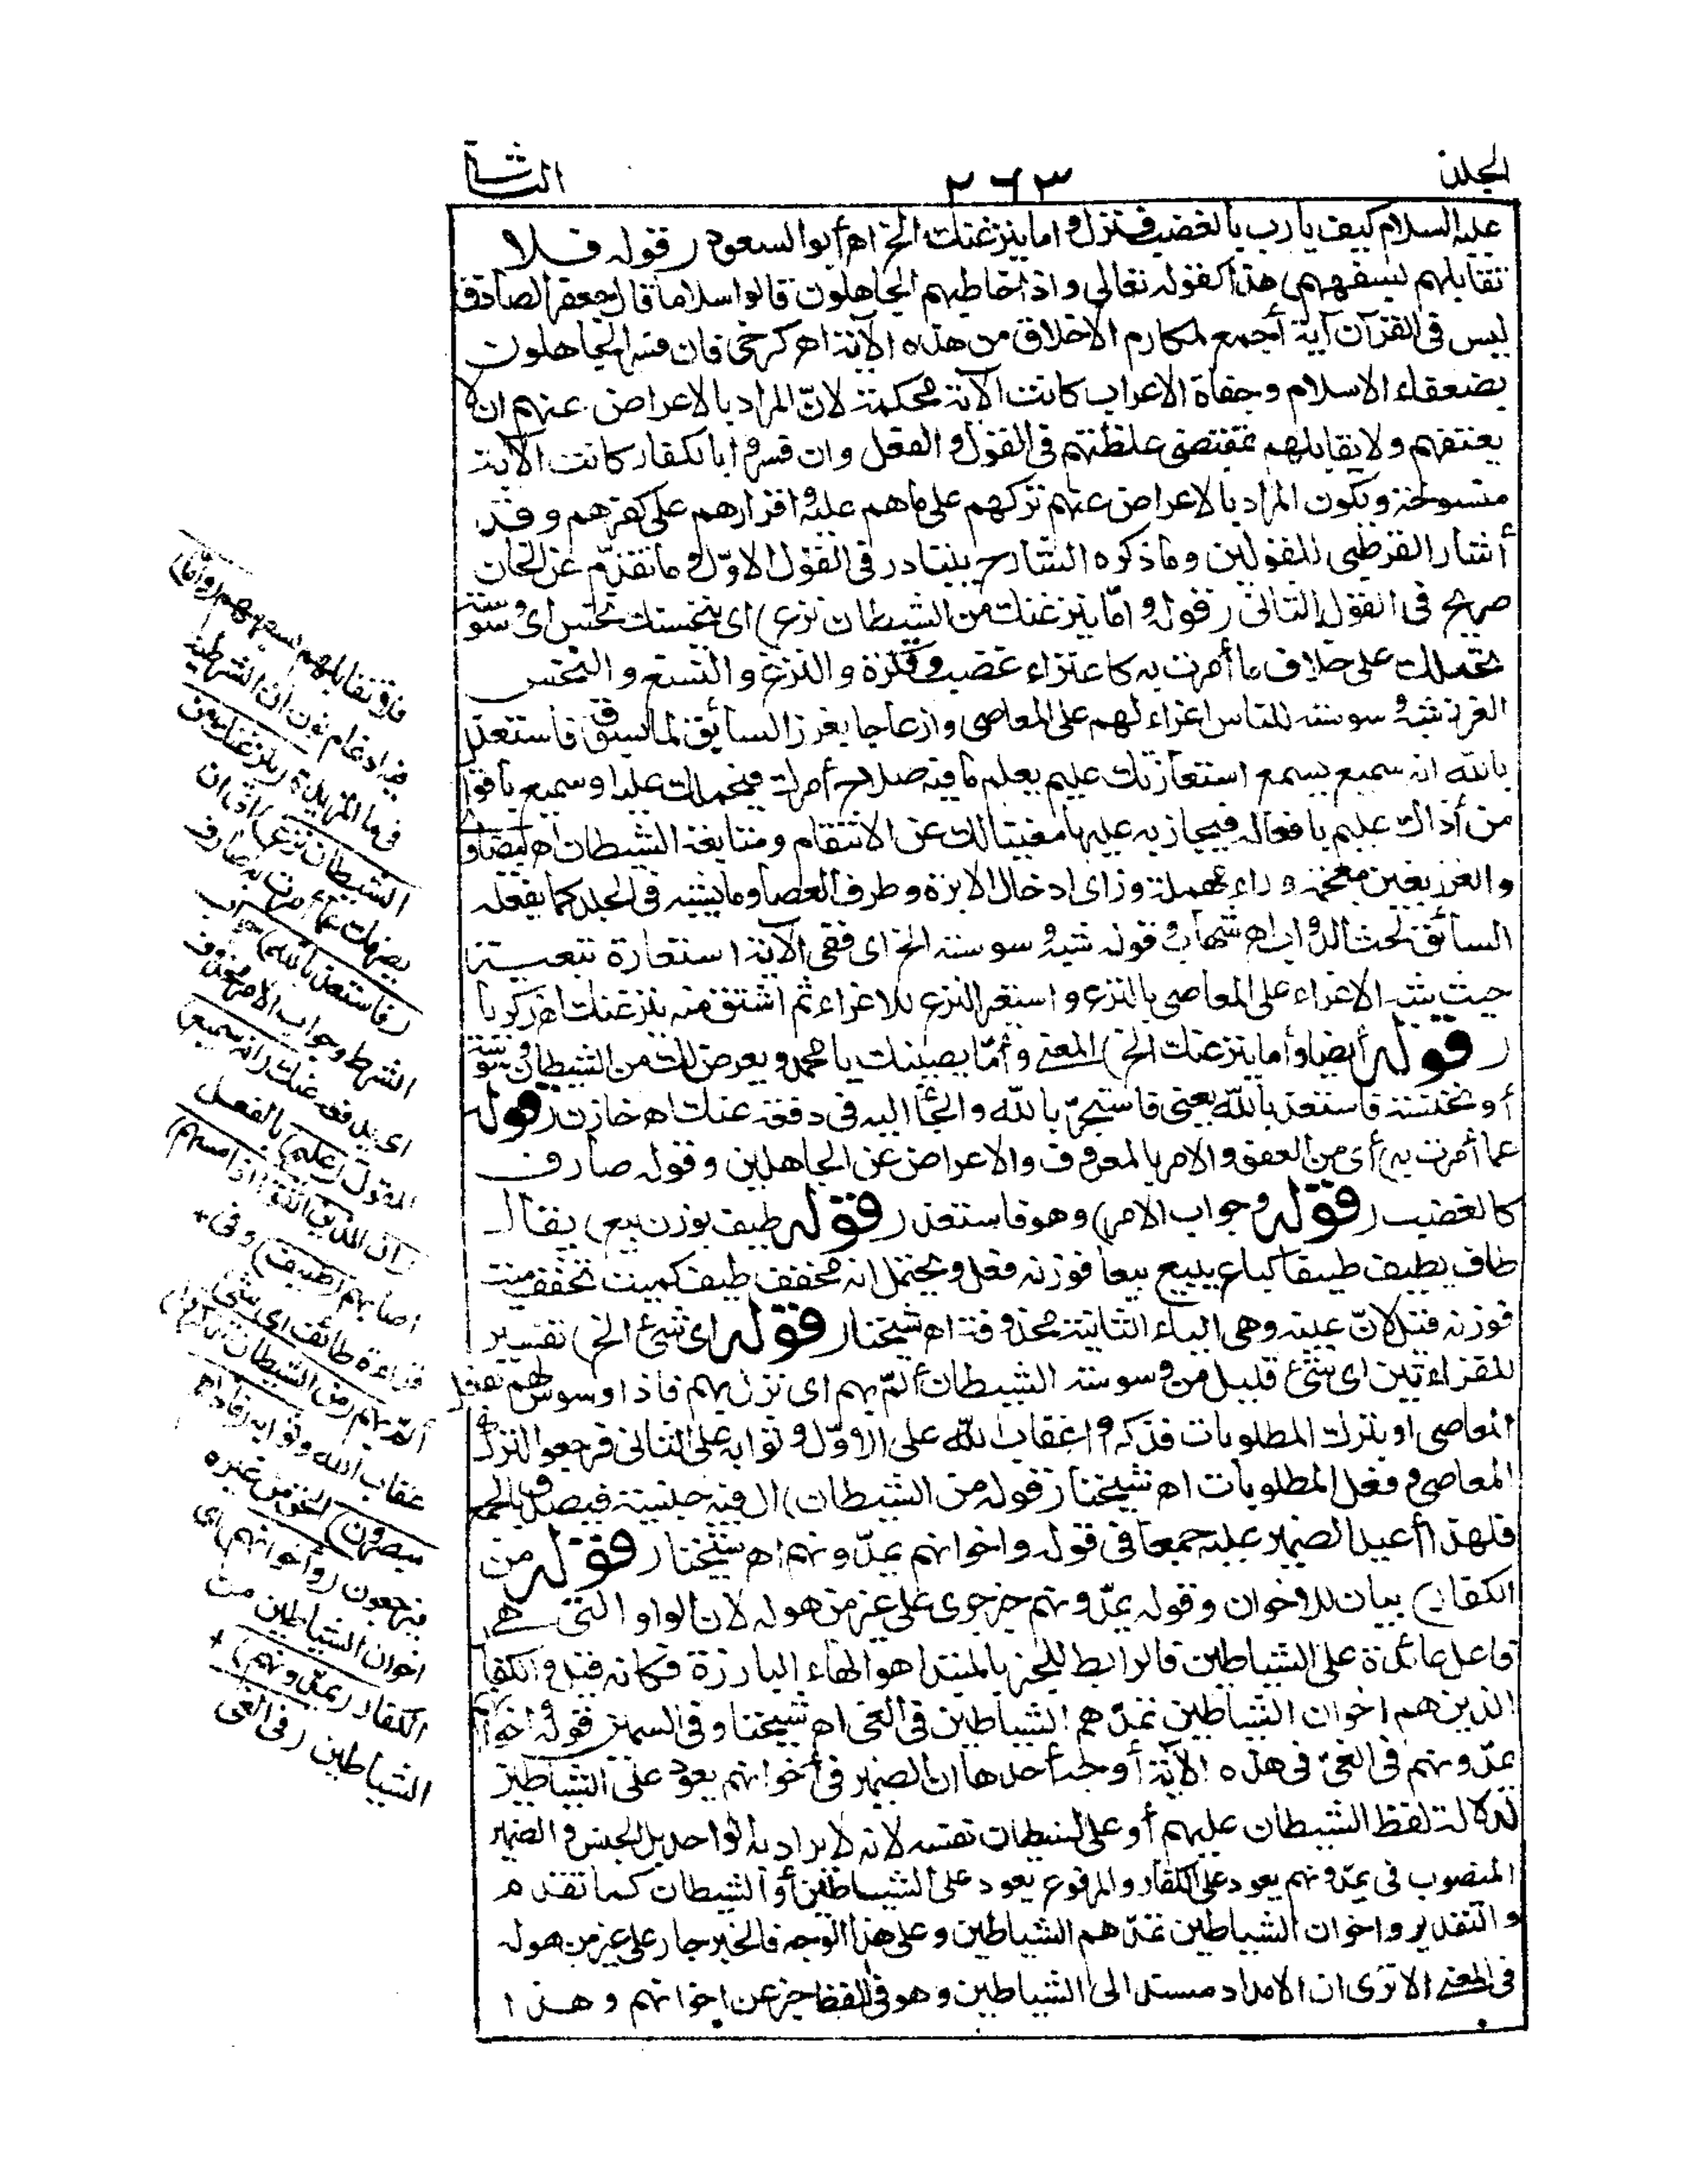 الجلد
٢٦٣
الثانى
عليه السلام كيف يا رب بالغضب فنزل واما ينزغنك الخ اه أبو السعود (قوله فلا
تقابلهم بسفههم) هذا كقوله تعالى واذا خاطبهم الجاهلون قالوا سلاما قال جعفر الصادق
ليس فى القرآن آية أجمع لمكارم الاخلاق من هذه الآية اه كرخى فان فسر الجاهلون
بضعفاء الاسلام وجفاة الاعراب كانت الآية محكمة لانّ المراد بالاعراض عنهم ان لا
يعنفهم ولا يقابلهم بمقتضى غلظتهم فى القول والفعل وان فسروا بالكفار كانت الآية
منسوخة ويكون المراد بالاعراض عنهم تركهم على ما هم عليه واقرارهم على كفرهم وقد
أشار القرطبى للقولين وما ذكره الشارح يتبادر فى القول الاوّل وما تقدّم عن الخازن
صريح فى القول الثانى (قوله وامّا ينزغنك من الشيطان نزغ) اى ينخسنك نخس اى وسوسة
تحملك على خلاف ما أمرت به كاعتراء غضب وفكرة والنزغ والنسغ والنخس
الغرز شبه وسوسته للناس اغراء لهم على المعاصى وازعاجا بغرز السائق لما يسوق فاستعذ
بالله انه سميع يسمع استعاذتك عليم يعلم ما فيه صلاح أمرك فيحملك عليه او سميع بأقوال
من أذاك عليم بافعاله فيجازيه عليها مغنيا لك عن الانتقام ومتابعة الشيطان اه بيضاوى
والغرز بغين معجمة وراء مهملة وزاى ادخال الابرة وطرف العصا وما يشبهه فى الجلد كما يفعله
السائق لحث الدواب اه شهاب وقوله شبه وسوسته الخ اى ففى الآية استعارة تبعية
حيث شبه الاغراء على المعاصى بالنزغ واستعير النزغ للاغراء ثم اشتق منه ينزغنك اه زكريا
(قوله أيضا وأما ينزغنك الخ) المعنى وأمّا يصيبنك يا محمد ويعرض لك من الشيطان وسوسة
أو نخسة فاستعذ بالله يعنى فاستجر بالله والجأ اليه فى دفعه عنك اه خازن (قوله
عما أمرت به) أى من العفو والامر بالمعروف والاعراض عن الجاهلين وقوله صارف
كالغضب (قوله وجواب الامر) وهو فاستعذ (قوله طيف بوزن بيع) يقال
طاف يطيف طيفا كباع يبيع بيعا فوزنه فعل ويحتمل انه مخفف طيف كميت تخفف ميت
فوزنه فيل لانّ عينه وهى الياء الثانية محذوفة اه شيخنا (قوله اى شئ الخ) تفسير
للقراءتين اى شئ قليل من وسوسة الشيطان ألمّ بهم اى نزل بهم فاذا وسوس لهم بفعل
المعاصى او بترك المطلوبات تذكروا عقاب الله على الاوّل وثوابه على الثانى فرجعوا لترك
المعاصى وفعل المطلوبات اه شيخنا (قوله من الشيطان) ال فيه جنسية فيصدق بالجمع
فلهذا أعيد الضمير عليه جمعا فى قوله واخوانهم يمدّونهم اه شيخنا (قوله من
الكفار) بيان للاخوان وقوله يمدّونهم خبر جرى على غير من هو له لان الواو التى هى
فاعل عائدة على الشياطين فالرابط للخبر بالمبتدا هو الهاء البارزة فكانه قيل والكفار
الذين هم اخوان الشياطين تمدّهم الشياطين فى الغى اه شيخنا وفى السمين قوله واخوانهم
يمدّونهم فى الغىّ فى هذه الآية أوجه أحدها ان الضمير فى أخوانهم يعود على الشياطين
لدلالة لفظ الشيطان عليهم أو على الشيطان نفسه لانه لا يراد به الواحد بل الجنس والضمير
المنصوب فى يمدّونهم يعود على الكفار والمرفوع يعود على الشياطين أو الشيطان كما تقدم
والتقدير واخوان الشياطين تمدّهم الشياطين وعلى هذا الوجه فالخبر جار على غير من هو له
فى المعنى الا ترى ان الامداد مسند الى الشياطين وهو فى اللفظ خبر عن اخوانهم وهذا
فلا تقابلهم بسفههم (واما)
فيه ادغام نون ان الشرطية
فى ما المزيدة (ينزغنك من
الشيطان نزغ) اى ان
يصرفك عما أمرت به صارف
(فاستعذ بالله) جواب
الشرط وجواب الامر محذوف
اى يدفعه عنك (انه سميع)
للقول (عليم) بالفعل
(ان الذين اتقوا اذا مسهم)
اصابهم (طيف) وفى
قراءة طائف اى شئ
ألمّ بهم (من الشيطان تذكروا)
عقاب الله وثوابه (فاذا هم
مبصرون) الحق من غيره
فيرجعون (وأخوانهم) اى
اخوان الشياطين من
الكفار (يمدّونهم)
الشياطين (فى الغى